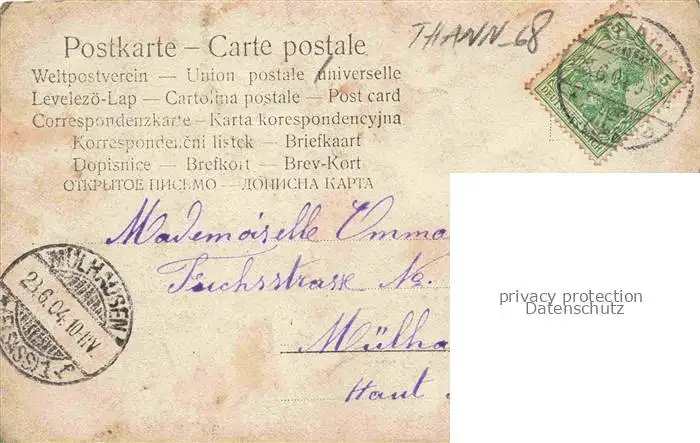 THANN_68
Postkarte — Carte postale
Weltpostverein — Union postale universelle
Levelező-Lap — Cartolina postale — Post card
Correspondenzkarte — Karta korespondencyjna
Korrespondenční listek — Briefkaart
Dopisnice — Brefkort — Brev-Kort
ОТКРЫТОЕ ПИСЬМО — ДОПИСНА КАРТА
5 5
DEUTSCHES REICH
Mademoiselle Emma
Fuchsstrasse No.
Mülha
Haut
MÜLHAUSEN
23.6.04.10-11V.
(ELSASS) 1 f
privacy protection
Datenschutz